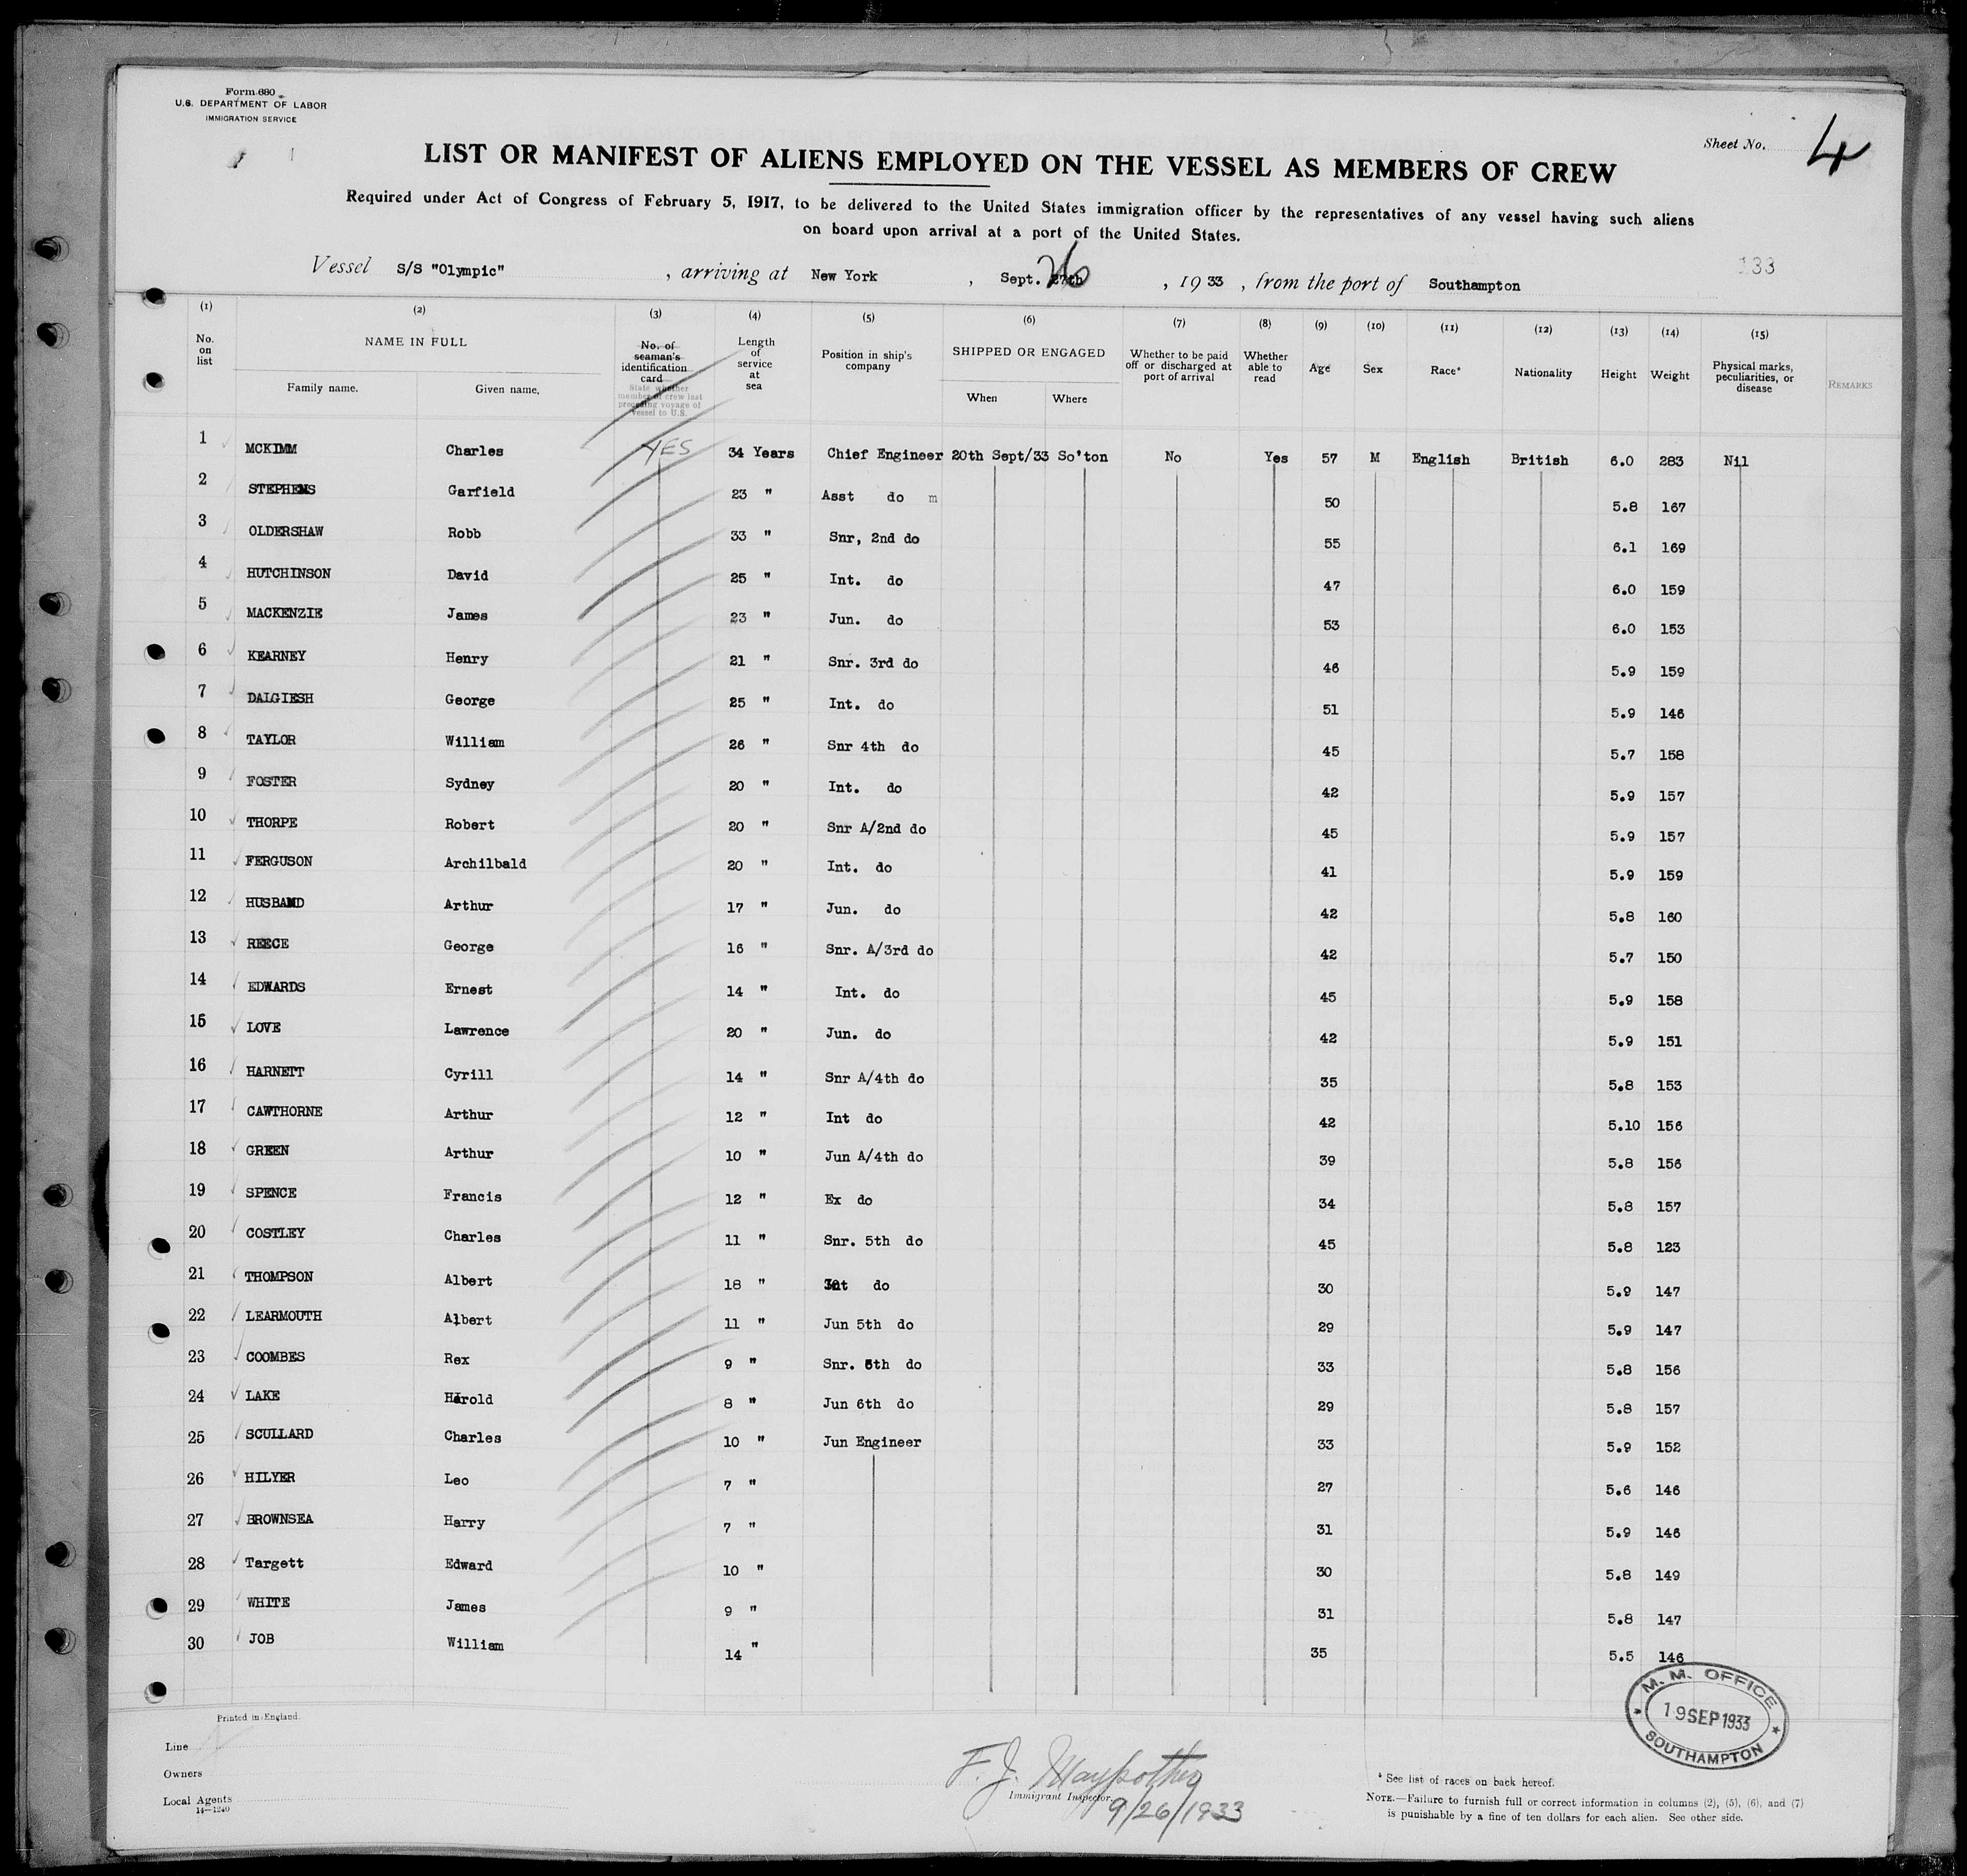 Form 680
U.S. DEPARTMENT OF LABOR
IMMIGRATION SERVICE
Sheet No. 4
LIST OR MANIFEST OF ALIENS EMPLOYED ON THE VESSEL AS MEMBERS OF CREW
Required under Act of Congress of February 5, 1917, to be delivered to the United States immigration officer by the representatives of any vessel having such aliens
on board upon arrival at a port of the United States.
133
Vessel S/S "Olympic", arriving at New York, Sept. 26, 1933, from the port of Southampton
(1) (2) (3) (4) (5) (6) (7) (8) (9) (10) (11) (12) (13) (14) (15)
No. on list NAME IN FULL Family name. Given name. No. of seaman's identification card State whether member of crew last preceding voyage of vessel to U.S. Length of service at sea Position in ship's company SHIPPED OR ENGAGED When Where Whether to be paid off or discharged at port of arrival Whether able to read Age Sex Race* Nationality Height Weight Physical marks, peculiarities, or disease REMARKS
1 MCKIMM Charles YES 34 Years Chief Engineer 20th Sept/33 So'ton No Yes 57 M English British 6.0 283 Nil
2 STEPHENS Garfield 23 " Asst do m 50 5.8 167
3 OLDERSHAW Robb 33 " Snr, 2nd do 55 6.1 169
4 HUTCHINSON David 25 " Int. do 47 6.0 159
5 MACKENZIE James 23 " Jun. do 53 6.0 153
6 KEARNEY Henry 21 " Snr. 3rd do 46 5.9 159
7 DALGIESH George 25 " Int. do 51 5.9 146
8 TAYLOR William 26 " Snr 4th do 45 5.7 158
9 FOSTER Sydney 20 " Int. do 42 5.9 157
10 THORPE Robert 20 " Snr A/2nd do 45 5.9 157
11 FERGUSON Archilbald 20 " Int. do 41 5.9 159
12 HUSBAND Arthur 17 " Jun. do 42 5.8 160
13 REECE George 16 " Snr. A/3rd do 42 5.7 150
14 EDWARDS Ernest 14 " Int. do 45 5.9 158
15 LOVE Lawrence 20 " Jun. do 42 5.9 151
16 HARNETT Cyrill 14 " Snr A/4th do 35 5.8 153
17 CAWTHORNE Arthur 12 " Int do 42 5.10 156
18 GREEN Arthur 10 " Jun A/4th do 39 5.8 156
19 SPENCE Francis 12 " Ex do 34 5.8 157
20 COSTLEY Charles 11 " Snr. 5th do 45 5.8 123
21 THOMPSON Albert 18 " Int do 30 5.9 147
22 LEARMOUTH Albert 11 " Jun 5th do 29 5.9 147
23 COOMBES Rex 9 " Snr. 6th do 33 5.8 156
24 LAKE Harold 8 " Jun 6th do 29 5.8 157
25 SCULLARD Charles 10 " Jun Engineer 33 5.9 152
26 HILYER Leo 7 " 27 5.6 146
27 BROWNSEA Harry 7 " 31 5.9 146
28 Targett Edward 10 " 30 5.8 149
29 WHITE James 9 " 31 5.8 147
30 JOB William 14 " 35 5.5 146
M. M. OFFICE
19 SEP 1933
SOUTHAMPTON
Printed in England.
Line
Owners
Local Agents
14—1240
F. J.
Immigrant Inspector.
9/26/1933
* See list of races on back hereof.
NOTE.—Failure to furnish full or correct information in columns (2), (5), (6), and (7)
is punishable by a fine of ten dollars for each alien. See other side.